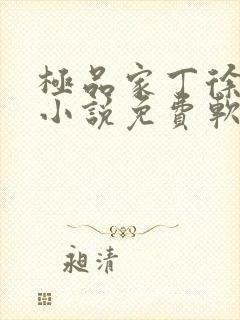 極品家丁徐
小說免費軟
昶清